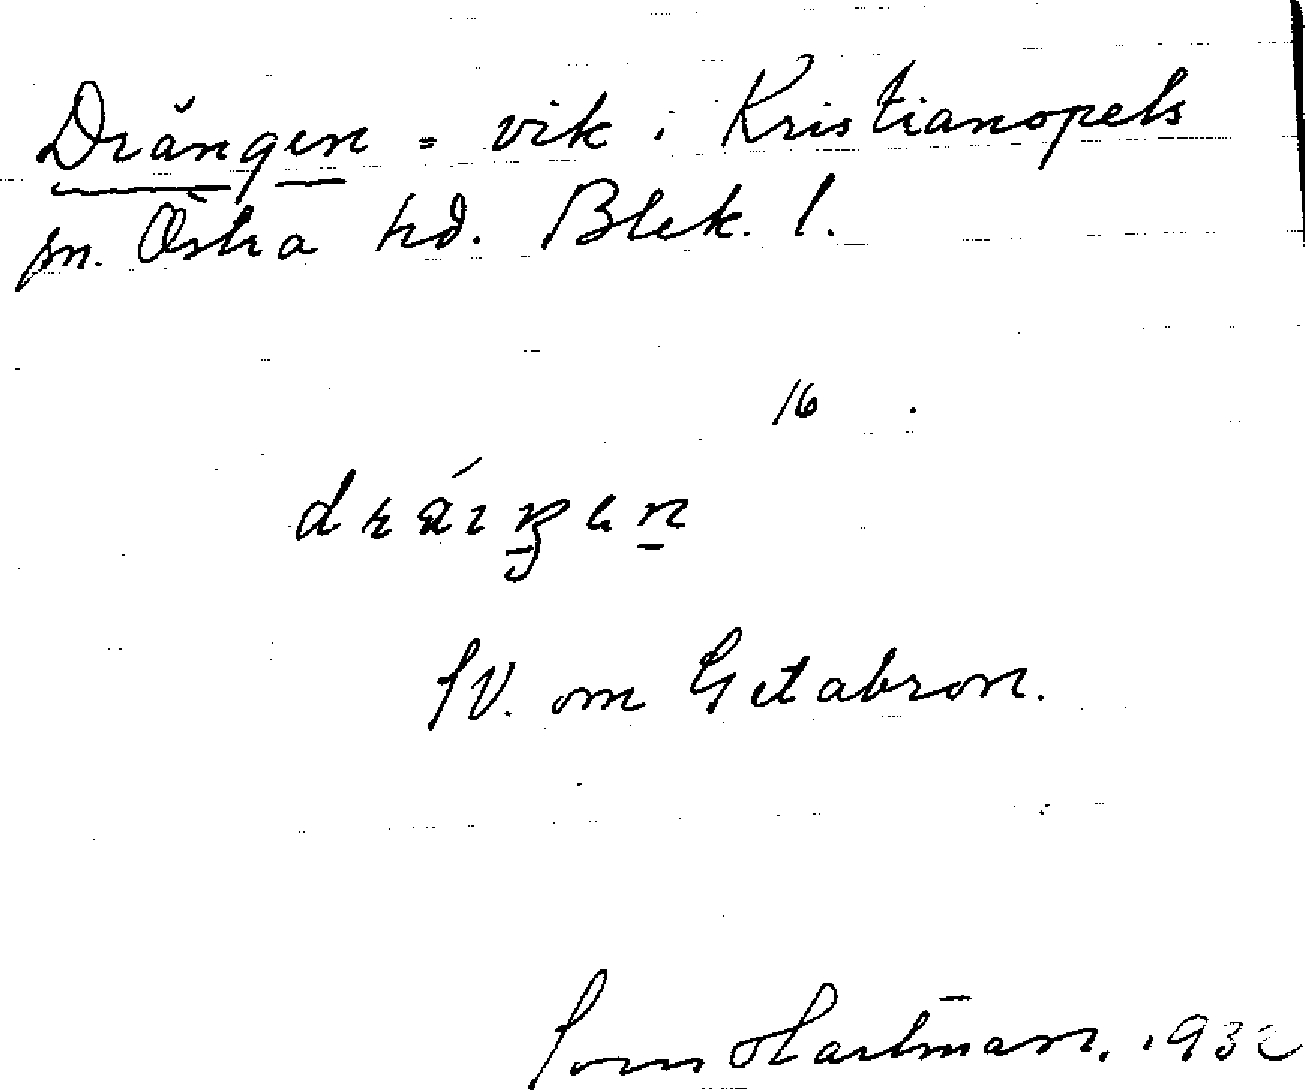 Drängen = vik i Kristianopels
sn. Östra hd. Blek. l.
16
SV. om Getabron.
Hartman. 1932